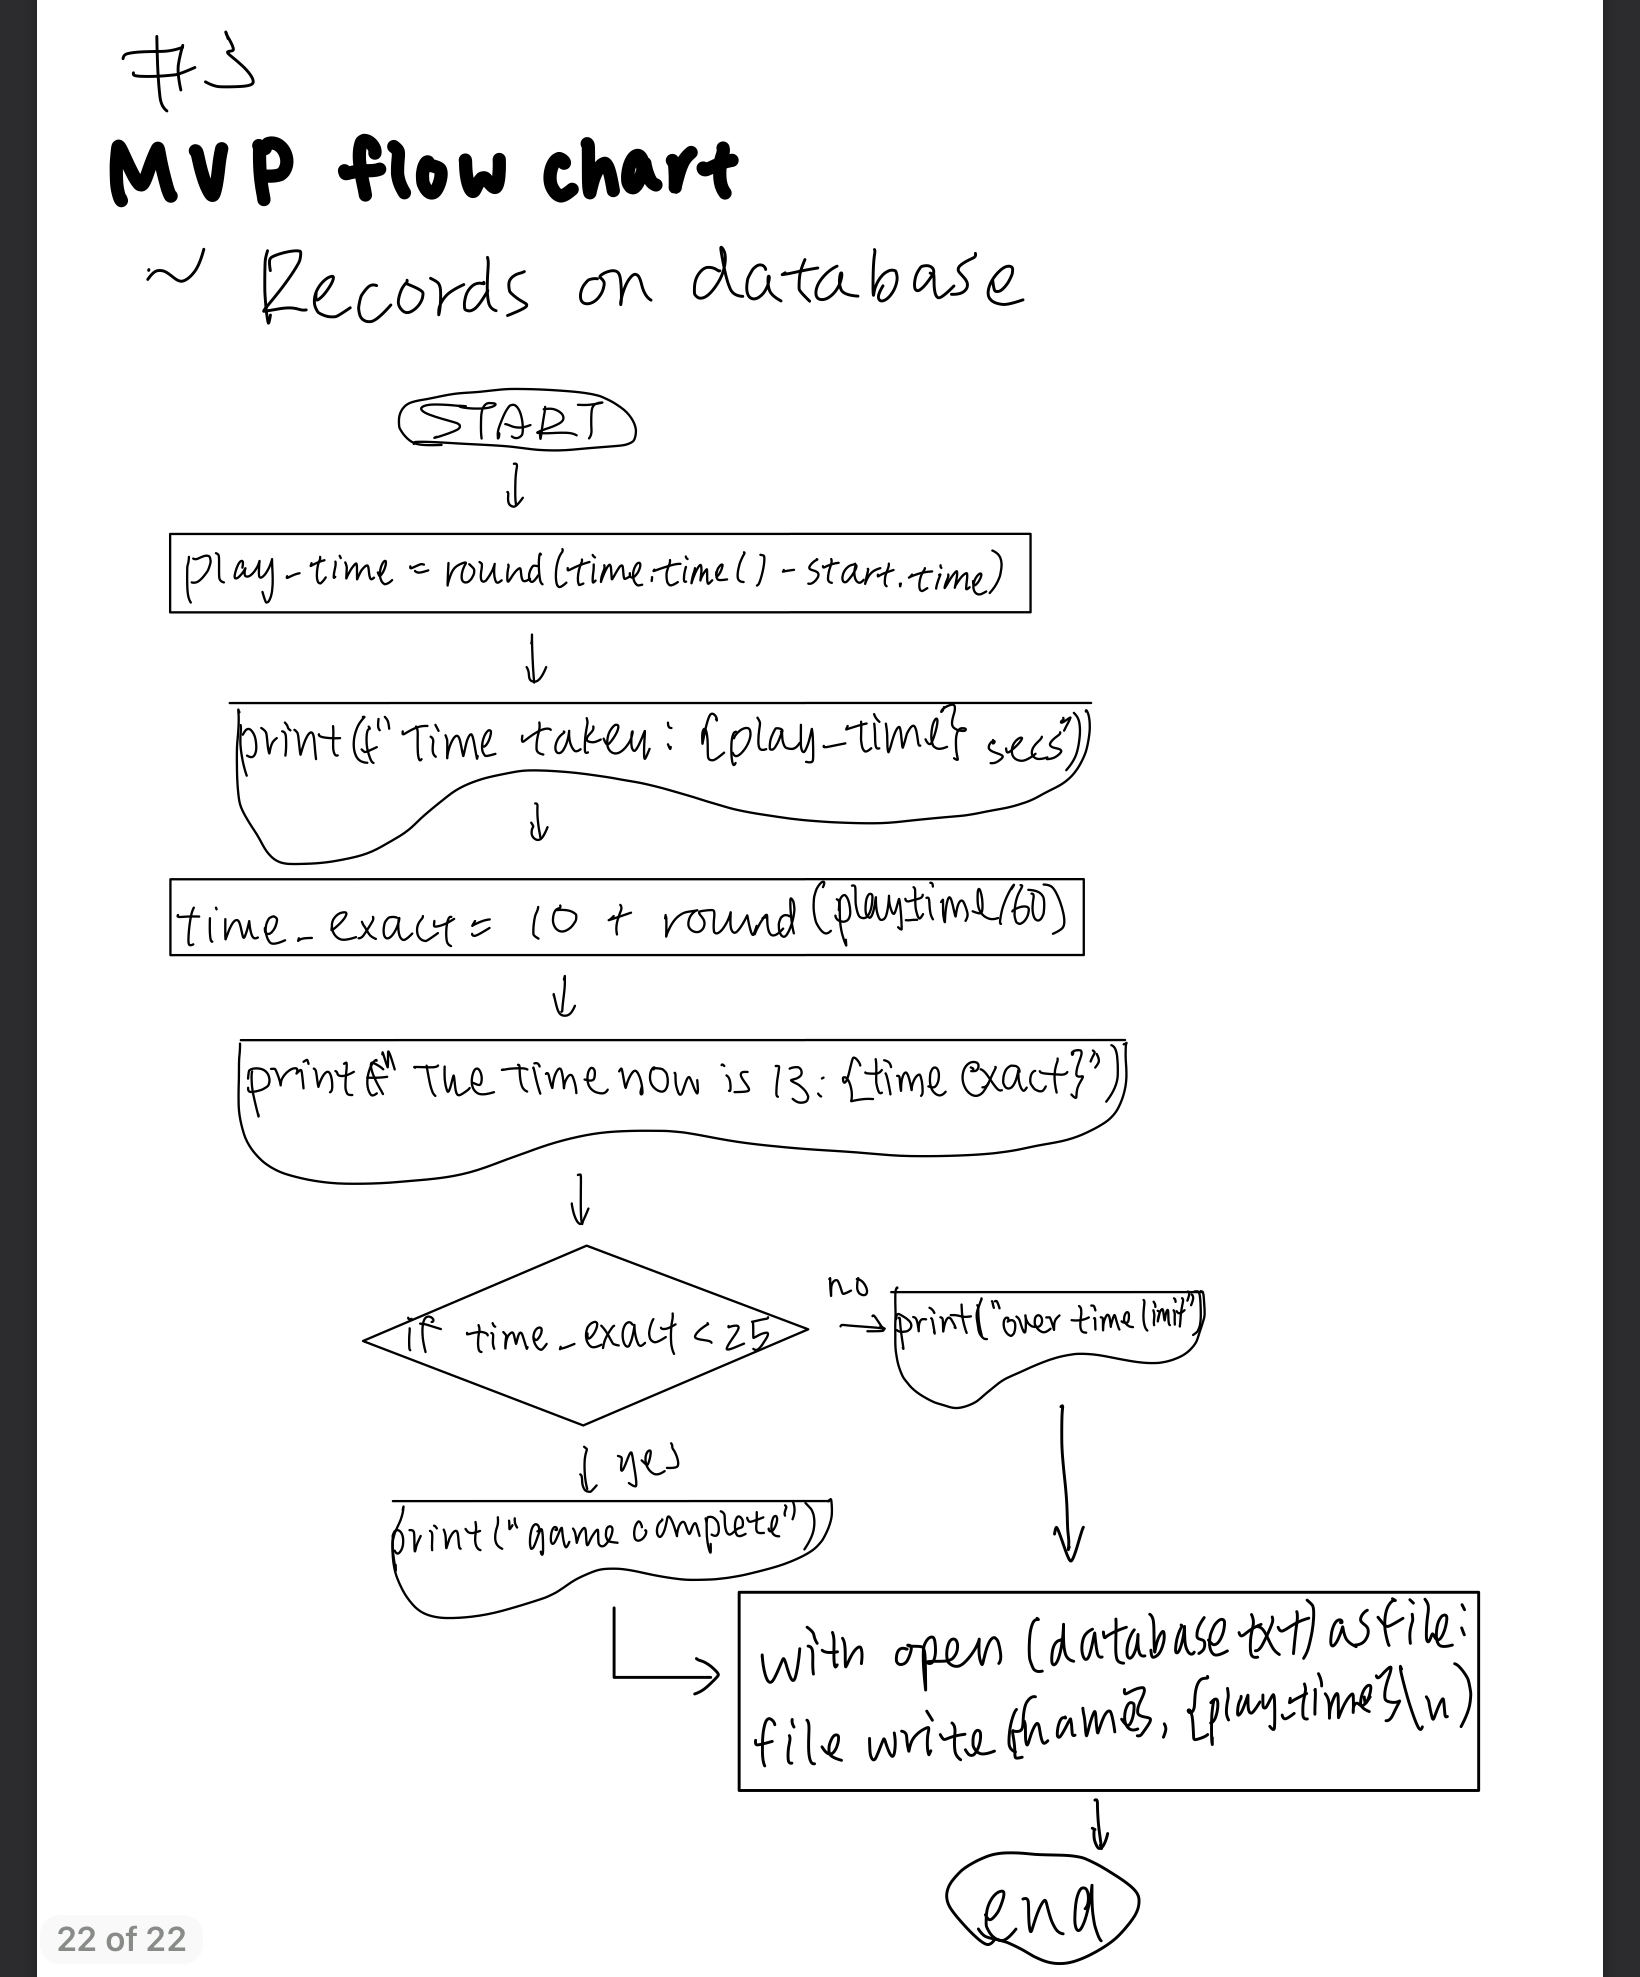 #3
MVP flow chart
~ Records on database
START
play_time = round(time.time() - start.time)
print(f"Time taken: {play_time} secs"))
time_exact = 10 + round(playtime/60)
print(f" The time now is 13: {time exact}")
if time_exact < 25
no
print("over time limit")
yes
print("game complete")
with open (database txt) as file:
file write ({name}, {play_time}\n)
end
22 of 22